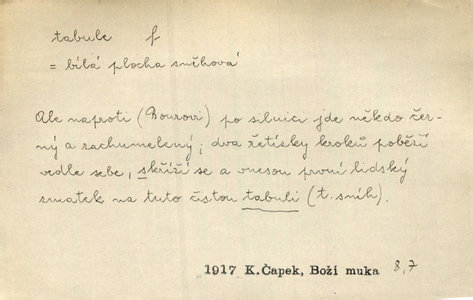 tabule f
= bílá plocha sněhová
Ale naproti (Bourovi) po silnici jde někdo čer-
ný a zachumelený; dva řetízky kroků poběží
vedle sebe, skříží se a vnesou první lidský
zmatek na tuto čistou tabuli (t. sníh).
1917 K.Čapek, Boží muka 8,7